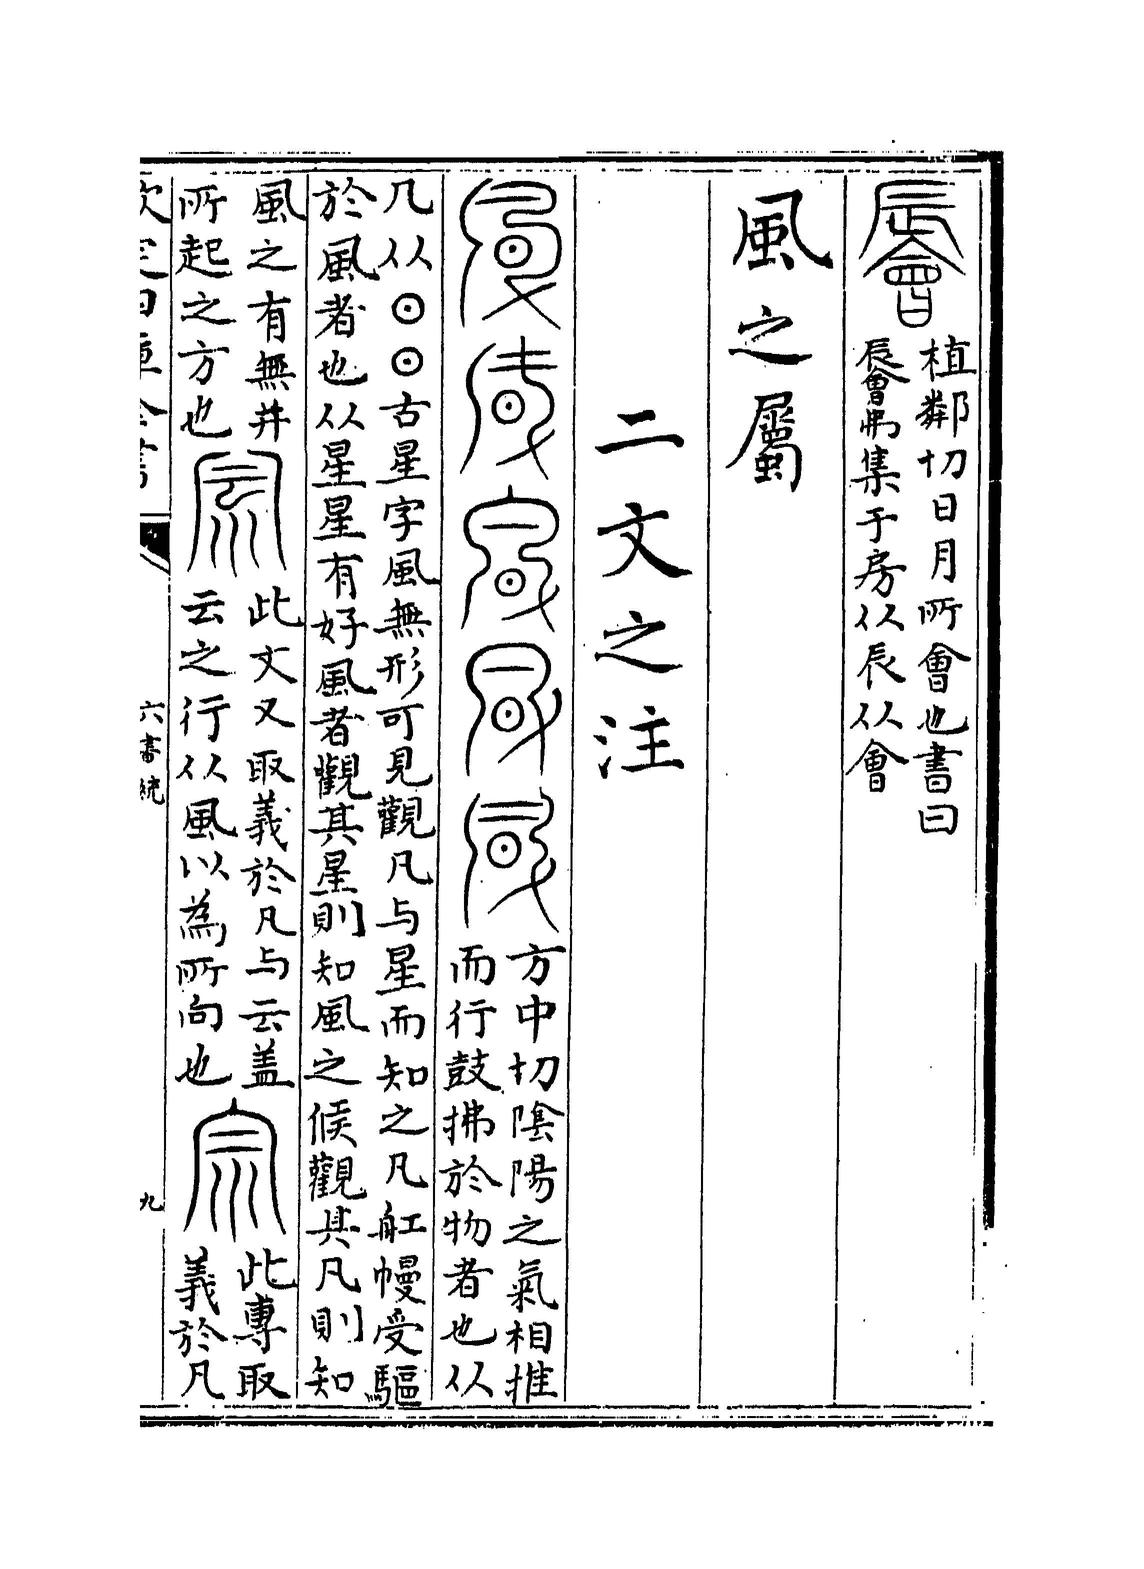 植鄰切日月所會也書曰
弗集于房从辰从會
風之屬
二文之注
方中切陰陽之氣相推
而行鼓拂於物者也从
凡从⊙⊙古星字風無形可見觀凡与星而知之凡舡幔受驅
於風者也从星星有好風者觀其星則知風之候觀其凡則知
風之有無并
所起之方也
此文又取義於凡与云盖
云之行从風以為所向也
此專取
義於凡
六書統
九